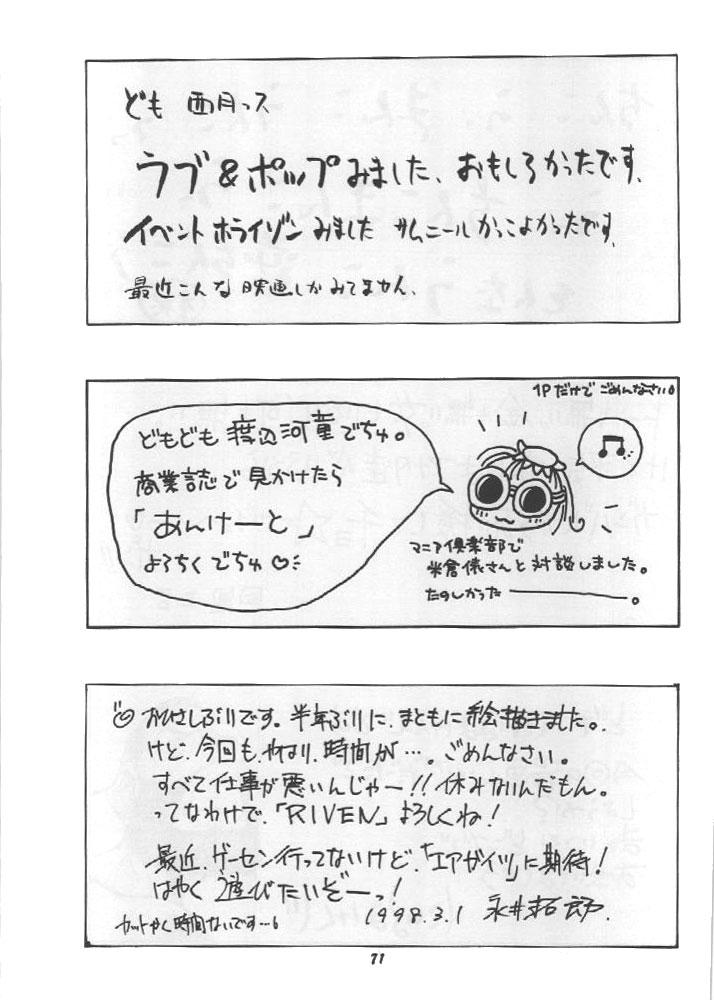 ども 西月っス
ラブ&ポップみました、おもしろかったです、
イベントホライゾンみました サムニールかっこよかったです、
最近こんな映画しかみてません、
1Pだけでごめんなさい。
どもども 渡辺河童でちゅ。
商業誌で見かけたら
「あんけーと」
よろちくでちゅ♡
マニア倶楽部で
米倉俵さんと対談しました。
たのしかった―――。
おひさしぶりです。半年ぶりに、まともに絵描きました。
けど、今回も、やはり、時間が…。ごめんなさい。
すべて仕事が悪いんじゃー!!休みないんだもん。
ってなわけで、「RIVEN」よろしくね!
最近、ゲーセン行ってないけど、「エアガイツ」に期待!
はやく遊びたいぞーっ!
1998.3.1 永井拓郎.
カットかく時間ないです…。
71